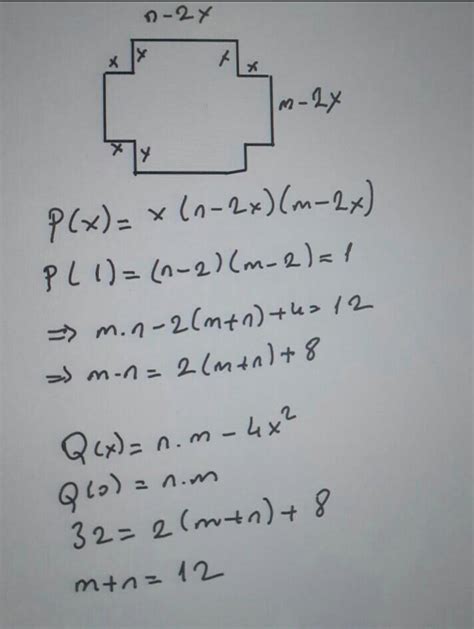 n-2x
x x x x
m-2x
x x
P(x)= x (n-2x)(m-2x)
P(1)=(n-2)(m-2)=1
⇒ m.n-2(m+n)+4=12
⇒ m-n= 2(m+n)+8
Q(x)=n.m-4x²
Q(0)=n.m
32=2(m+n)+8
m+n=12